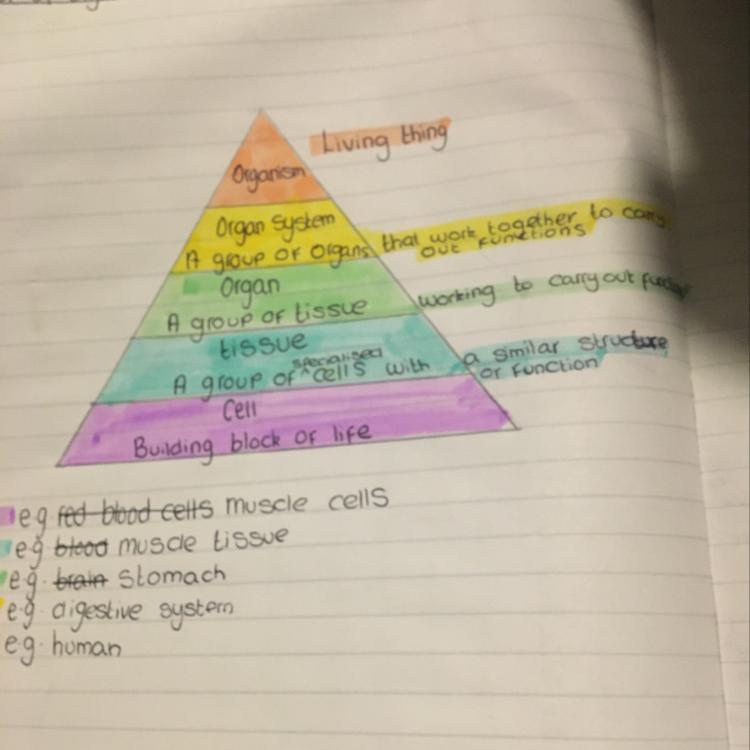 Living thing
Organism
Organ System
A group of organs that work together to carry
out functions
Organ
A group of tissue working to carry out
tissue
specialised
A group of ^ cells with a similar structure
or function
Cell
Building block of life
eg red blood cells muscle cells
eg blood muscle tissue
eg. brain stomach
e.g. digestive system
eg. human